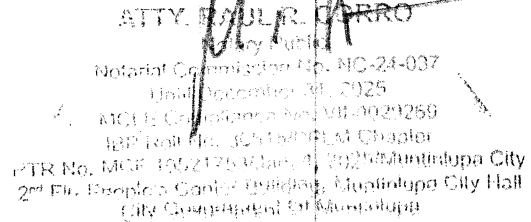 ATTY. RAUL R. CORRO
Notary Public
Notarial Commission No. NC-24-037
Until December 31, 2025
MCLE Compliance No. VII-0029269
IBP Roll No. Chapter
PTR No. MCF 2025/Muntinlupa City
2nd Flr. People's Center Building, Muntinlupa City Hall
City Government Of Muntinlupa